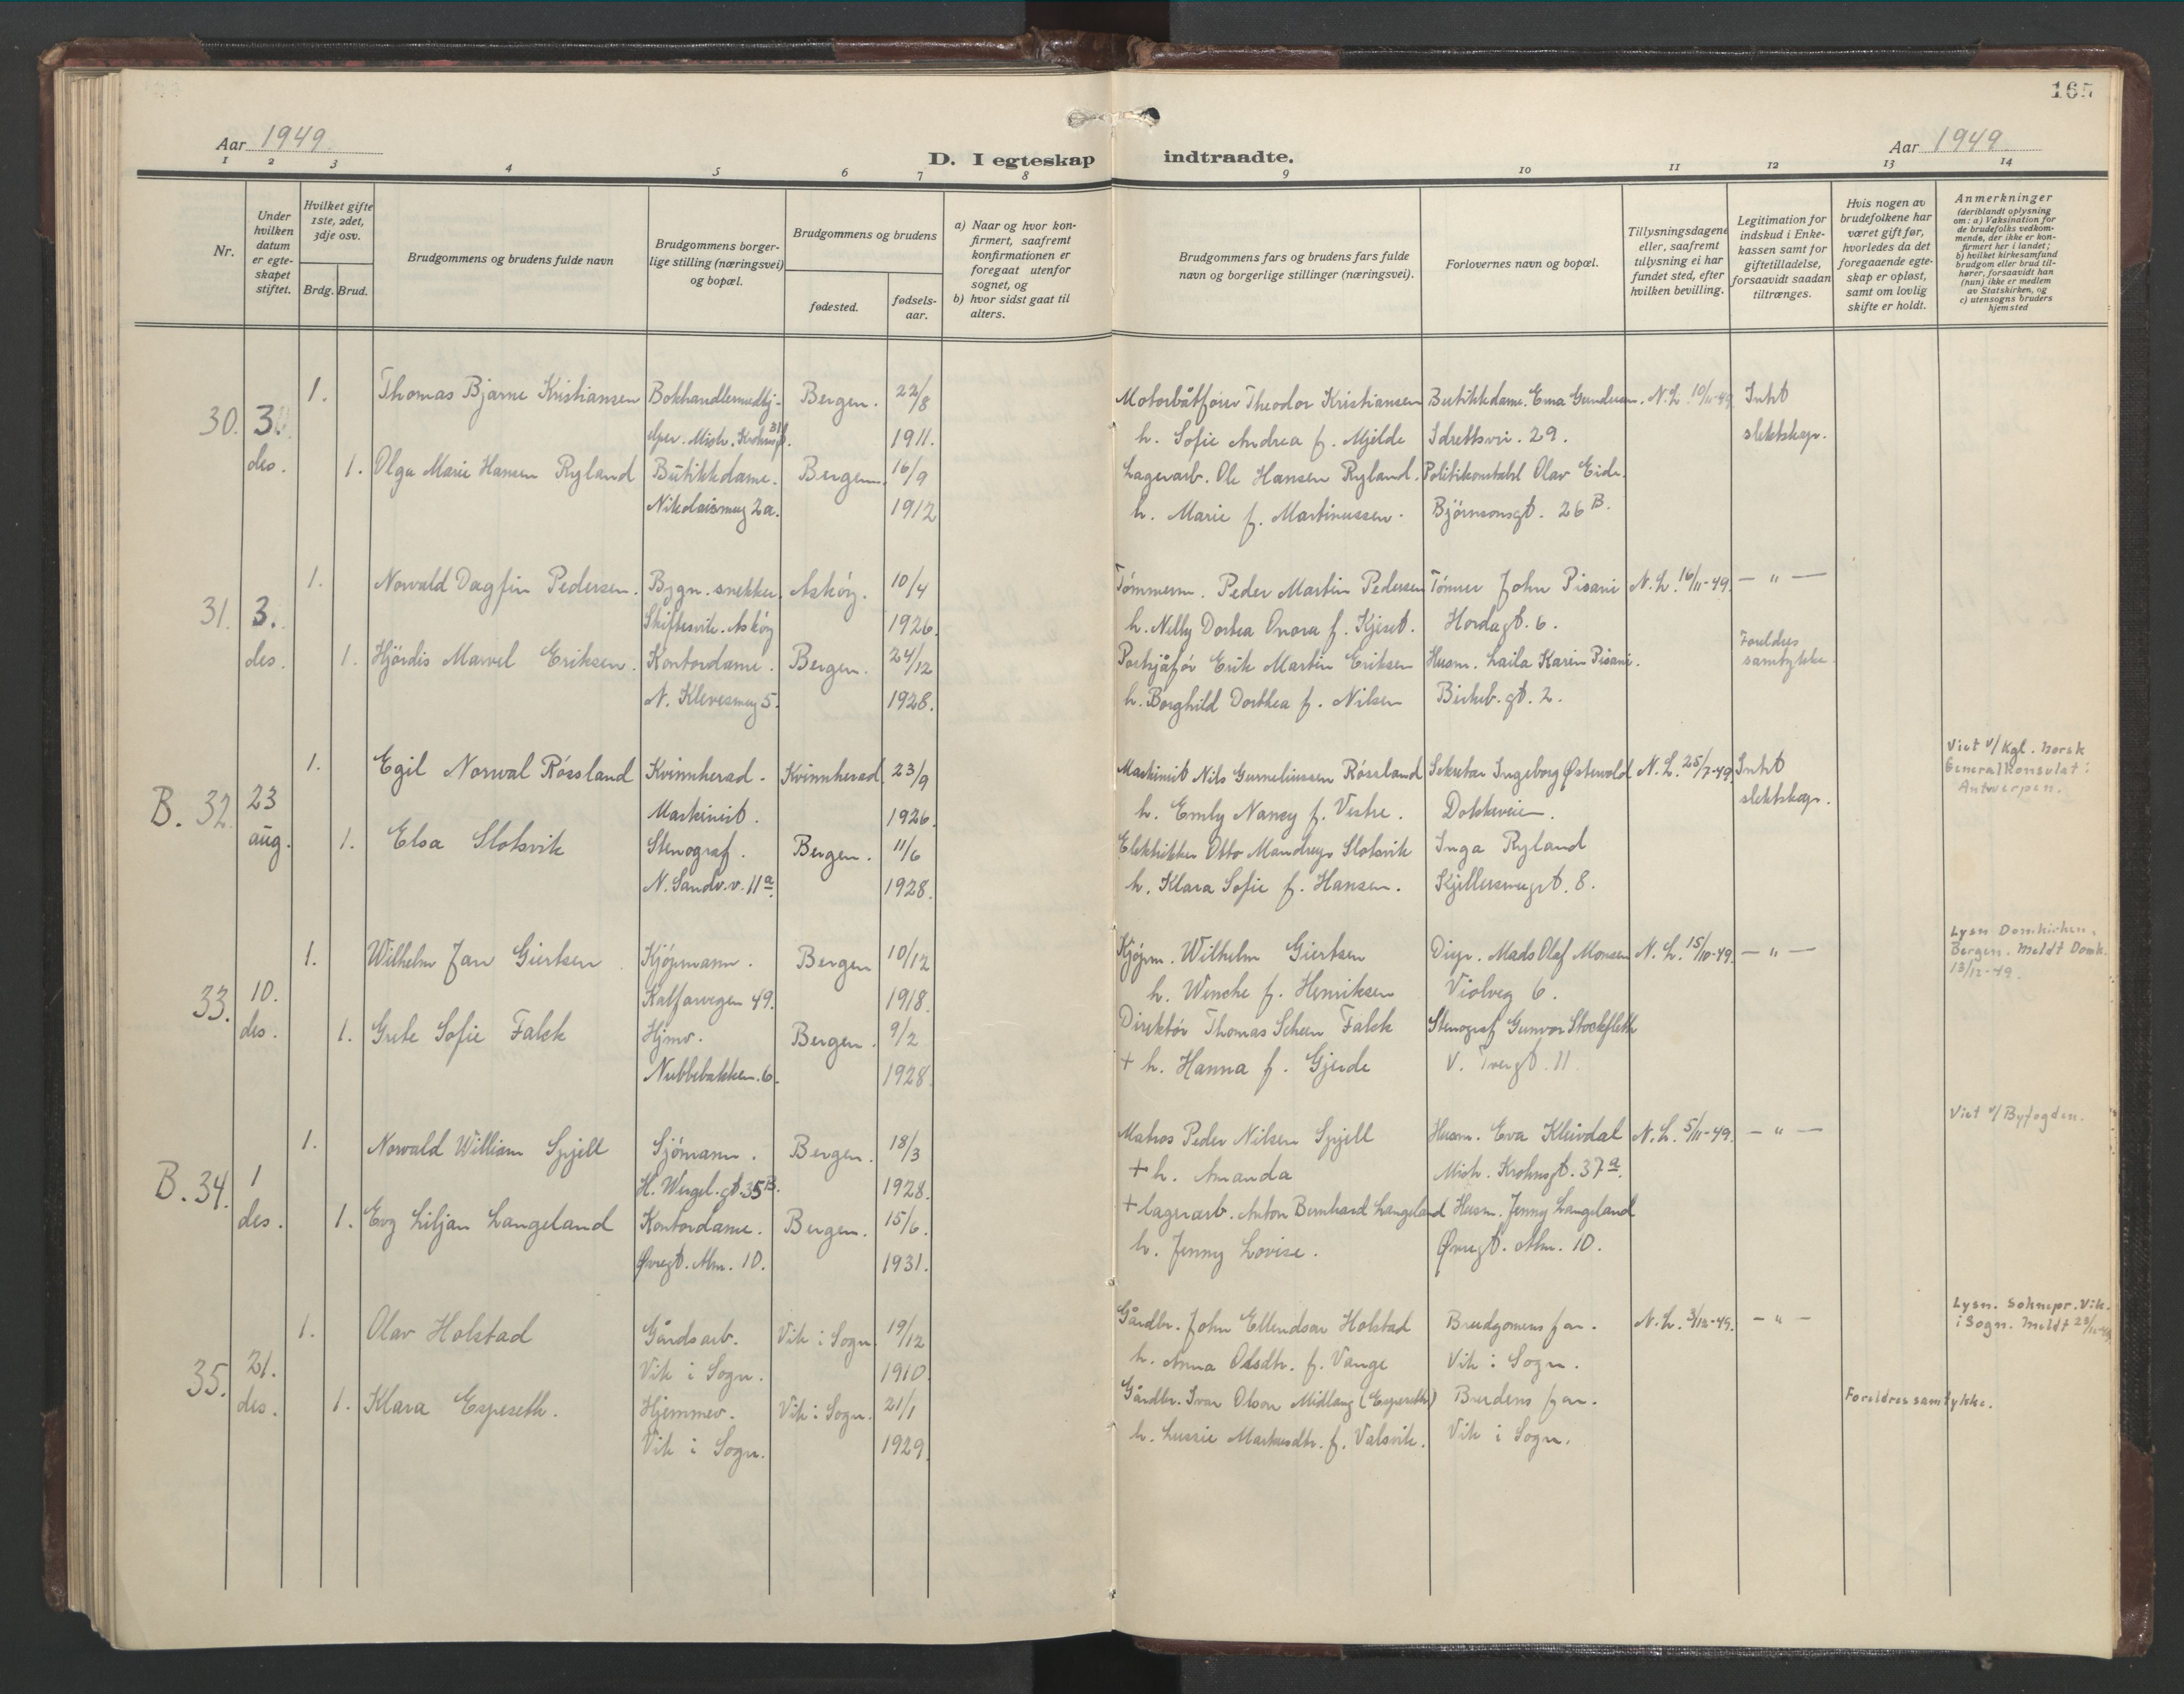 165
Aar 1949.
D. I egteskap indtraadte.
Aar 1949.
1 2 3 4 5 6 7 8 9 10 11 12 13 14
Nr.
Under hvilken datum er egteskapet stiftet.
Hvilket gifte 1ste, 2det, 3dje osv.
Brdg. Brud.
Brudgommens og brudens fulde navn
Brudgommens borgerlige stilling (næringsvei) og bopæl.
Brudgommens og brudens
fødested.
fødselsaar.
a) Naar og hvor konfirmert, saafremt konfirmationen er foregaat utenfor sognet, og
b) hvor sidst gaat til alters.
Brudgommens fars og brudens fars fulde navn og borgerlige stillinger (næringsvei).
Forlovernes navn og bopæl.
Tillysningsdagene eller, saafremt tillysning ei har fundet sted, efter hvilken bevilling.
Legitimation for indskud i Enkekassen samt for giftetilladelse, forsaavidt saadan tiltrænges.
Hvis nogen av brudefolkene har været gift før, hvorledes da det foregaaende egteskap er opløst, samt om lovlig skifte er holdt.
Anmerkninger
(deriblandt oplysning om: a) Vaksination for de brudefolks vedkommende, der ikke er konfirmert her i landet; b) hvilket kirkesamfund brudgom eller brud tilhører, forsaavidt han (hun) ikke er medlem av Statskirken, og c) utensogns bruders hjemsted
1. Thomas Bjarne Kristiansen Bokhandlermedhj- Bergen. 22/8 Motorbåtfører Theodor Kristiansen Butikkdame. Erna Gundersen. N.L. 10/11-49. Intet
30. 3. Mich. Krohnsgt. 31. 1911. h. Sofie Andrea f. Mjelde Idrettsvei. 29. slektskap.
des. 1. Olga Marie Hansen Ryland Butikkdame. Bergen. 16/9 Lagerarb. Ole Hansen Ryland. Politikonstabel Olav Eide.
Nikolaismug 2a. 1912 h. Marie f. Martinussen. Bjørnsonsgt. 26 B.
1. Norvald Dagfin Pedersen. Bygn. snekker. Askøy. 10/4 Tømmerm. Peder Martin Pedersen Tømrer John Pisani N.L. 16/11-49. — " —
31. 3. Skiftesvik. Askøy 1926. h. Nelly Dortea Onora f. Kjeset. Hordagt. 6.
des. 1. Hjørdis Marvel Eriksen. Kontordame. Bergen. 24/12 Erik Martin Eriksen Husm. Laila Karin Pisani. Foreldres samtykke.
N. Klevesmug 5. 1928. h. Borghild Dorthea f. Nilsen Birkeb. gt. 2.
1. Egil Norval Røssland Kvinnherad. Kvinnherad. 23/9 Maskinist Nils Gurneliussen Røssland Sekretær Ingeborg Østervold N.L. 25/7-49. Intet Viet v/ Kgl. norsk
B. 32. 23 Maskinist. 1926. h. Emly Nancy f. Vestre. Dokkeveien. slektskap. Generalkonsulat:
aug. 1. Elsa Slotsvik Stenograf. Bergen. 11/6 Elektriker Otto Mandrup Slotsvik Inga Ryland Antwerpen.
N. Sandv. v. 11a. 1928. h. Klara Sofie f. Hansen. Kjellersmugt. 8.
1. Wilhelm Jan Giertsen Kjøpmann. Bergen 10/12 Kjøpm. Wilhelm Giertsen Disp. Mads Olaf Monsen N.L. 15/10-49. — " — Lysn Domkirken.
33. 10. Kalfarvegen 49. 1918. h. Wenche f. Henriksen Violveg 6. Bergen. Meldt Domk.
des. 1. Grete Sofie Falck Hjmv. Bergen. 9/2 Direktør Thomas Scheen Falck Stenograf Gunvor Stockfleth 13/12-49.
Nubbebakken. 6. 1928. + h. Hanna f. Gjerde V. Tvergt. 11
1. Norvald William Spjell Sjømann. Bergen. 18/3 Matros Peder Nilsen Spjell Husm. Eva Kleivdal N.L. 5/11-49. — " — Viet v/ Byfogden.
B. 34. 1 H. Wergel. gt. 35 B. 1928. + h. Amanda Mich. Krohnsgt. 37a.
des. 1. Evy Liljan Langeland Kontordame. Bergen. 15/6. + lagerarb. Anton Bernhard Langeland Husm. Jenny Langeland
Øvregt. Alm. 10. 1931. h. Jenny Lovise. Øvregt. Alm. 10.
1. Olav Holstad Gårdsarb. Vik i Sogn. 19/12 Gårdbr. John Ellendson Holstad Brudgomens far. N.L. 3/12-49. — " — Lysn. Soknepr. Vik.
35. 21. Vik i Sogn. 1910. h. Anna Olsdtr. f. Vange Vik i Sogn. i Sogn. Meldt
des. 1. Klara Espeseth. Hjemmev. Vik i Sogn. 21/1 Gårdbr. Ivar Olson Midlang (Espeseth) Brudens far. Foreldres samtykke.
Vik i Sogn. 1929. h. Lussie Markusdtr. f. Valsvik. Vik i Sogn.